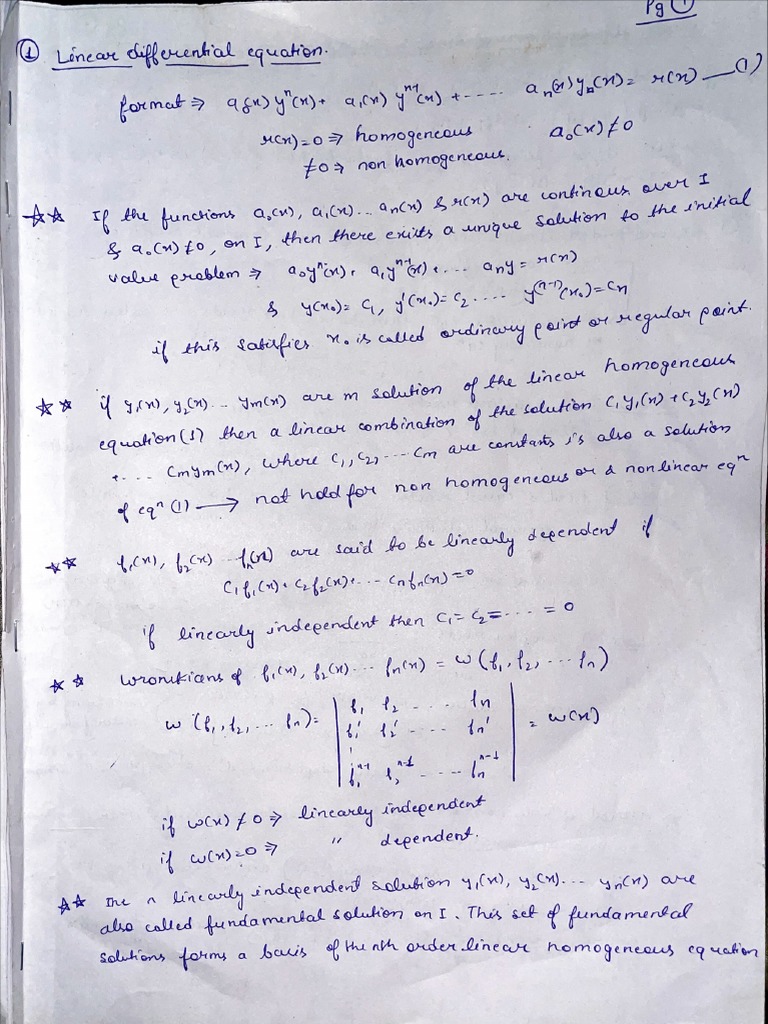 Pg ①
① Linear differential equation.
format ⇒ a₀(x) yⁿ(x) + a₁(x) yⁿ⁻¹(x) + ----- aₙ(x) yₙ(x) = r(x) —(1)
r(x) = 0 ⇒ homogeneous a₀(x) ≠ 0
≠ 0 ⇒ non homogeneous.
☆☆ If the functions a₀(x), a₁(x)... aₙ(x) & r(x) are continous over I
& a₀(x) ≠ 0, on I, then there exists a unique solution to the initial
value problem ⇒ a₀yⁿ(x) + a₁yⁿ⁻¹(x) + ... aₙy = r(x)
& y(x₀) = c₁, y'(x₀) = c₂ .... y⁽ⁿ⁻¹⁾(x₀) = cₙ
if this satisfies x₀ is called ordinary point or regular point.
☆☆ if y₁(x), y₂(x) ... yₘ(x) are m solution of the linear homogeneous
equation (1) then a linear combination of the solution c₁y₁(x) + c₂y₂(x)
+ ... cₘyₘ(x), where c₁, c₂, ... cₘ are constants is also a solution
of eqⁿ (1) → not hold for non homogeneous or & nonlinear eqⁿ
☆☆ f₁(x), f₂(x) ... fₙ(x) are said to be linearly dependent if
c₁f₁(x) + c₂f₂(x) + ... cₙfₙ(x) = 0
if linearly independent then c₁ = c₂ = ..... = 0
☆☆ wronskians of f₁(x), f₂(x) ... fₙ(x) = w (f₁, f₂, ... fₙ)
w (f₁, f₂, ... fₙ) = | f₁ f₂ ... fₙ |
| f₁' f₂' .... fₙ' | = w(x)
| f₁ⁿ⁻¹ f₂ⁿ⁻¹ ..... fₙⁿ⁻¹ |
if w(x) ≠ 0 ⇒ linearly independent
if w(x) = 0 ⇒ " dependent.
☆☆ The n linearly independent solution y₁(x), y₂(x) ... yₙ(x) are
also called fundamental solution on I. This set of fundamental
solutions forms a basis of the nth order linear homogeneous equation